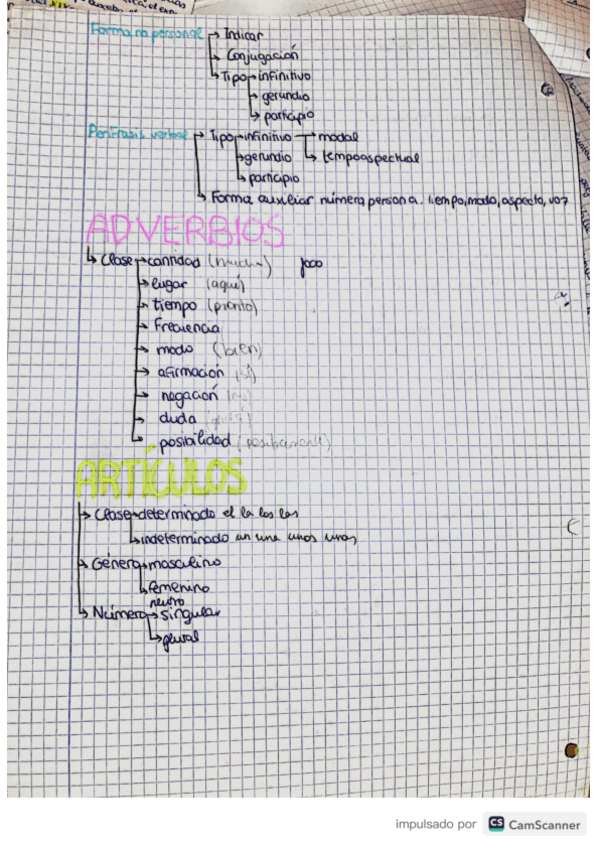 Forma no personal → Indicar
→ Conjugación
→ Tipo → infinitivo
→ gerundio
→ participio
Perífrasis verbal → Tipo → infinitivo → modal
→ gerundio → tempoaspectual
→ participio
→ Forma auxiliar número persona, tiempo, modo, aspecto, voz
ADVERBIOS
→ Clase → cantidad (mucho) poco
→ lugar (aquí)
→ tiempo (pronto)
→ Frecuencia
→ modo (bien)
→ afirmación (sí)
→ negación (no)
→ duda
→ posibilidad (posiblemente)
ARTÍCULOS
→ Clase → determinado el la los las
→ indeterminado un una unos unas
→ Género → masculino
→ femenino
neutro
→ Número → singular
→ plural
impulsado por CS CamScanner